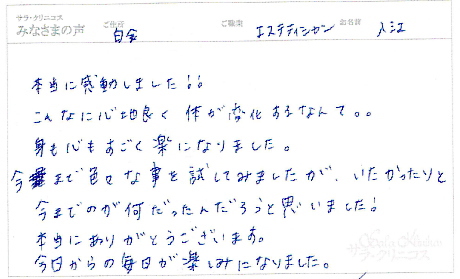 サラ・クリニコス
みなさまの声
ご住所 白金 ご職業 エステティシャン お名前 入江
本当に感動しました!!
こんなに心地良く体が変化するなんて。。
身も心もすごく楽になりました。
今まで色々な事を試してみましたが、いたかったりと
今までのが何だったんだろうと思いました!
本当にありがとうございます。
今日からの毎日が楽しみになりました。
サラ・クリニコス